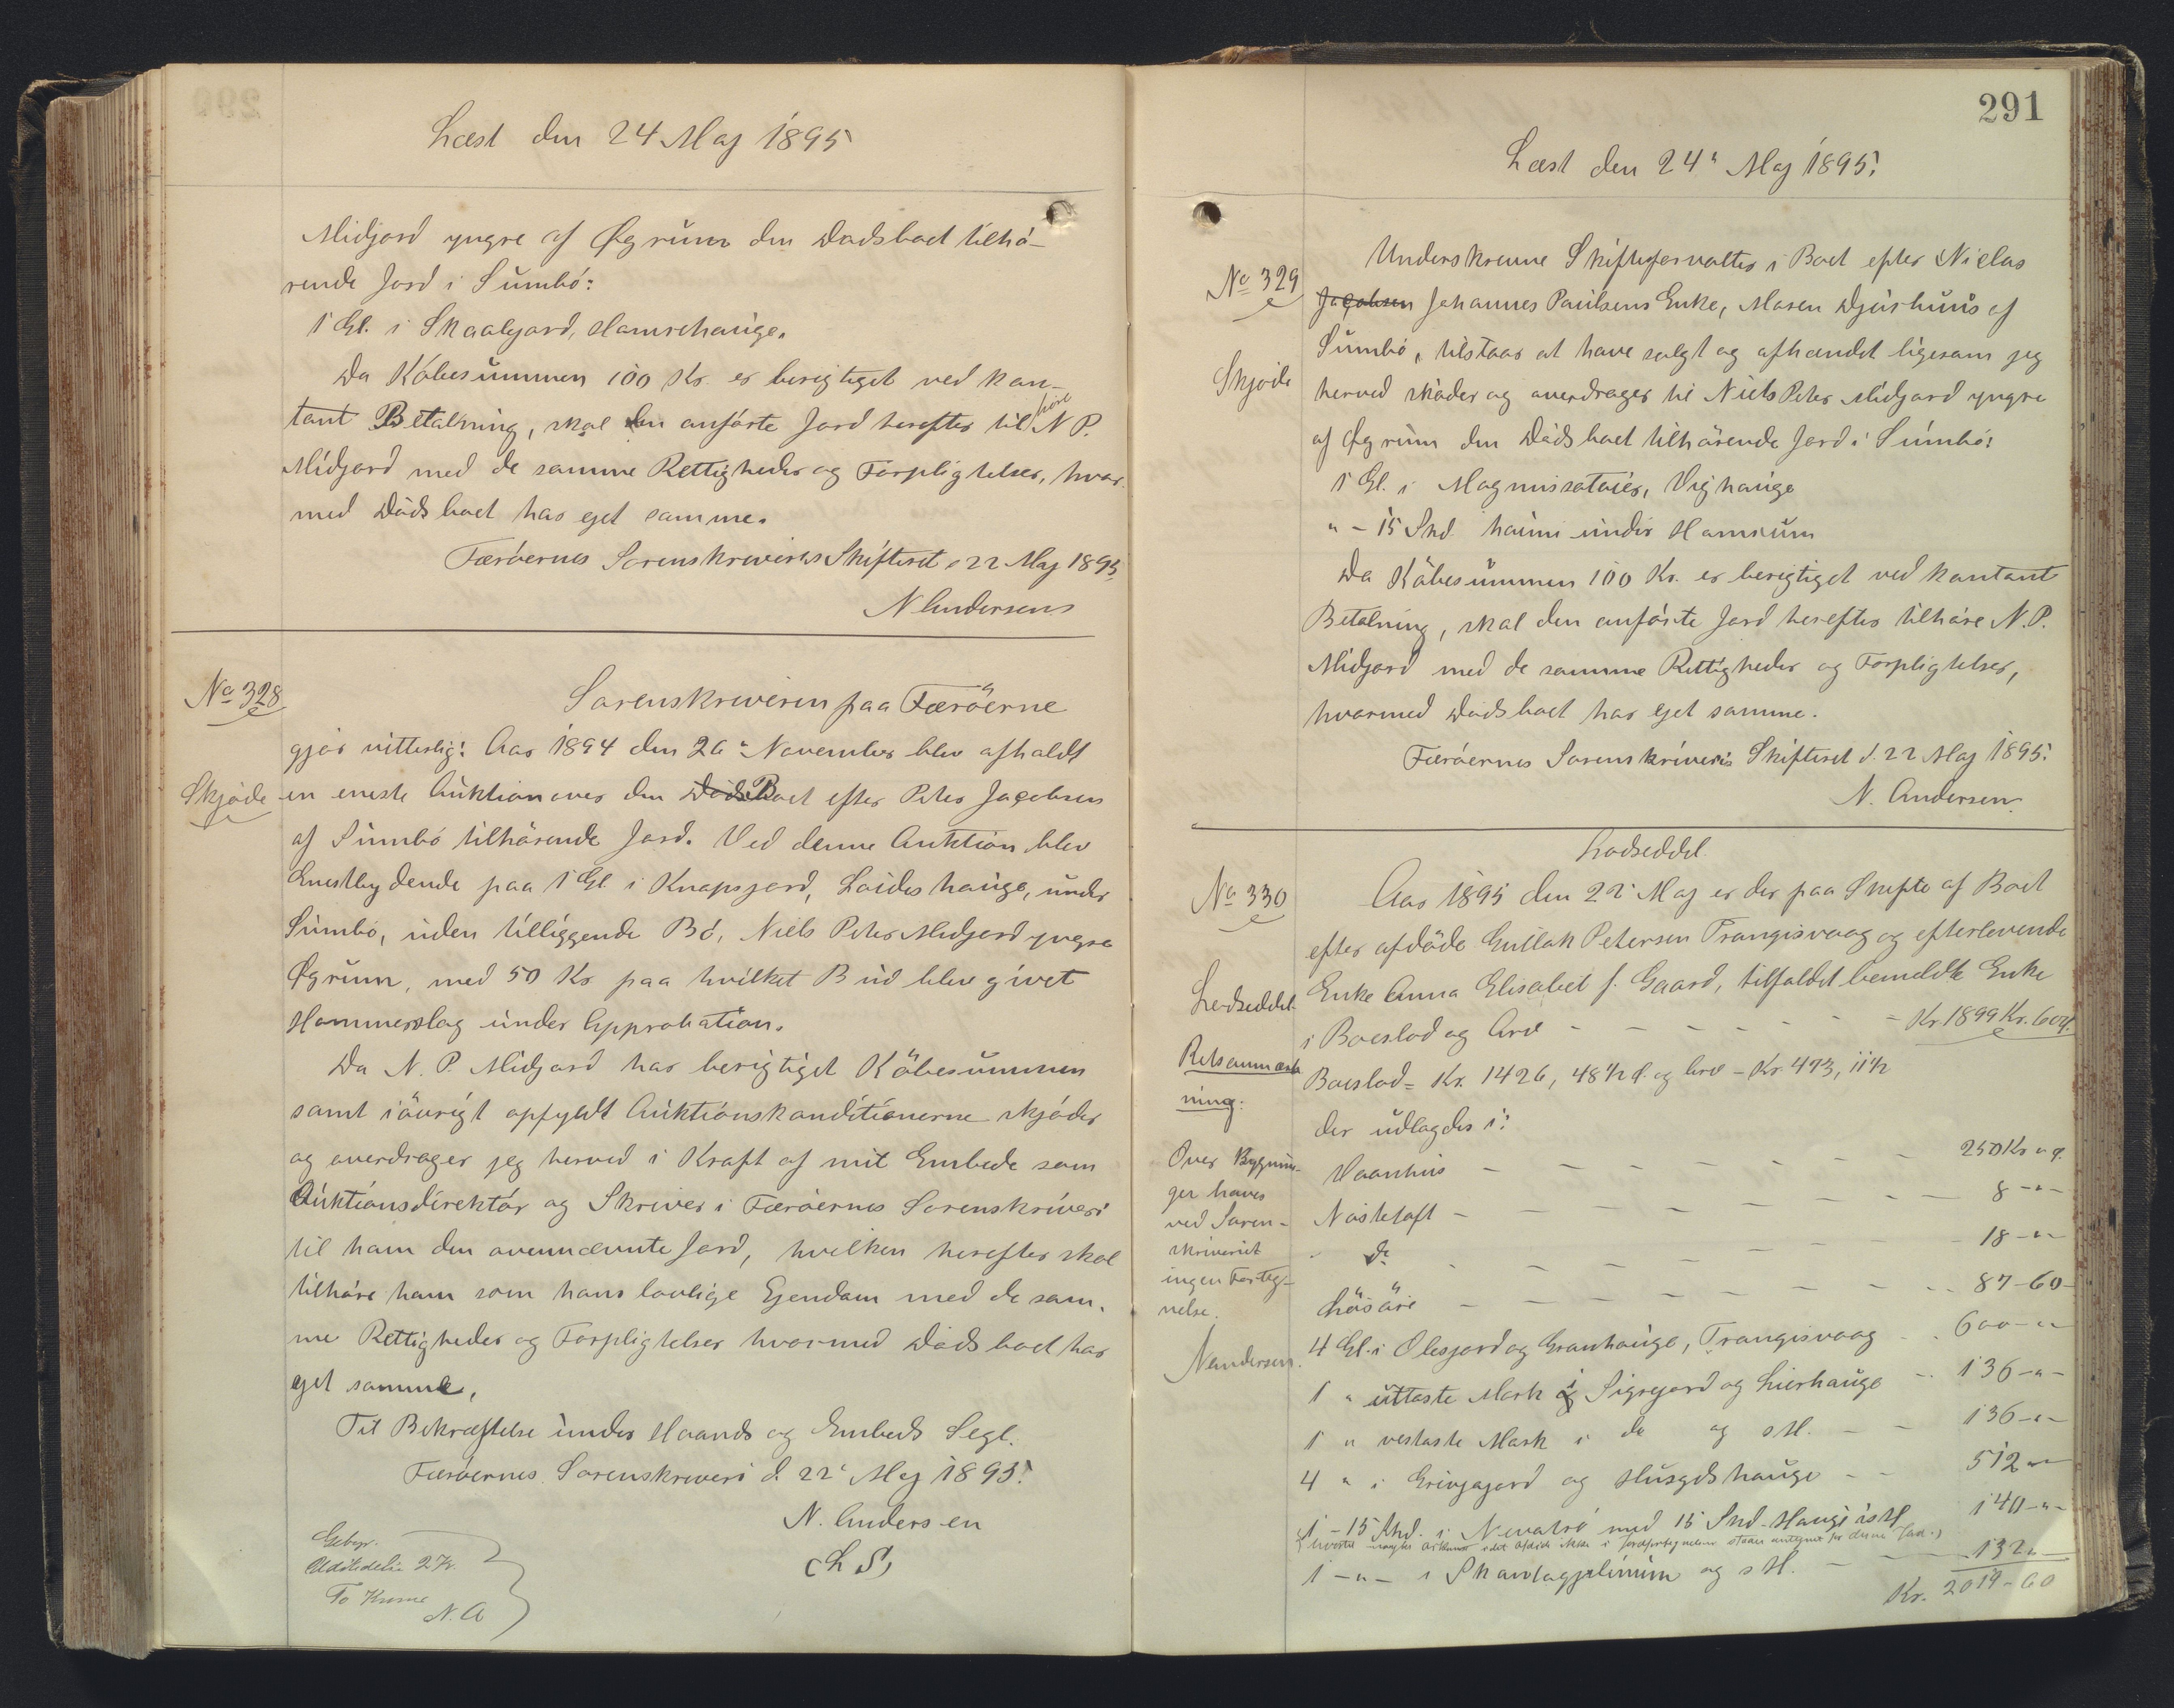 Læst den 24 Maj 1895
Midjord yngre af Øgrum den Dødsboet tilhö-
rende Jord i Sumbö:
1 Gl. i Skaalgard, Hamrehauge.
Da Köbesummen 100 Kr. er berigtiget ved kon-
tant Betalning, skal den anförte Jord herefter tilhöre N. P.
Midjord med de samme Rettigheder og Forpligtelser, hvor-
med Dödsboet har ejet samme.
Færöernes Sorenskriveries Skifteret, 22 Maj 1895,
N Andersen
No 328
Skjöde
Sorenskriveren paa Færöerne
gjör vitterligt: Aar 1894 den 26' November blev afholdt
en eneste Auktion over den Döds Boet efter Peter Jacobsen
af Sumbö tilhörende Jord. Ved denne Auktion blev
Enestbydende paa 1 Gl. i Knapsjord, Loides hauge, under
Sumbö, uden tilliggende Bö, Niels Peter Midjord yngre
Øgrum, med 50 Kr. paa hvilket Bud blev givet
Hammerslag under Approbation.
Da N. P. Midjord har berigtiget Köbesummen
samt iövrigt opfyldt Auktionskonditionerne skjöder
og overdrager jeg herved i Kraft af mit Embede som
Auktionsdirektör og Skriver i Færöernes Sorenskriveri
til ham den ovennævnte Jord, hvilken herefter skal
tilhöre ham som hans lovlige Ejendom med de sam-
me Rettigheder og Forpligtelser hvormed Dödsboet har
ejet samme,
Til Bekræftelse under Haand og Embeds Segl.
Færöernes Sorenskriveri d. 22' Maj 1895.
N. Andersen
(L S)
Gebyr.
Udstedelse 2 Kr.
To Krone
N. A
291
Læst den 24' Maj 1895.
No 329
Skjöde
Underskrevne Skifteforvalter i Boet efter Niclas
Jacobsen Johannes Paulsens Enke, Maren Djurhuus af
Sumbö, tilstaar at have solgt og afhændet ligesom jeg
herved sköder og overdrager til Niels Peter Midjord yngre
af Øgrum den Dödsboet tilhörende Jord i Sumbö:
1 Gl. i Magnusatoier, Vighauge
" - 15 Snd haimi undir Hamrum
Da Köbesummen 100 Kr. er berigtiget ved kontant
Betalning, skal den anförte Jord herefter tilhöre N. P.
Midjord med de samme Rettigheder og Forpligtelser,
hvormed Dödsboet har ejet samme.
Færöernes Sorenskriveris Skifteret d. 22 Maj 1895.
N. Andersen.
Lodseddel.
No 330
Lodseddel.
Aar 1895 den 22' Maj er der paa Skifte af Boet
efter afdöde Gutlak Petersen Trangisvaag og efterlevende
Enke Anna Elisabet f. Gaard, tilfaldet bemeldte Enke
i Boeslod og Arv - - - - - - - Kr. 1899 Kr. 60 Ø.
Boeslod = Kr. 1426, 48 1/2 Ø. og Arv - Kr. 473, 11 1/2
der udlagdes i:
Retsanmærk
ning:
Over Bygnin-
ger haves
ved Soren-
skriveriet
ingen Forteg-
nelse.
N Andersen.
Vaanhus - - - - - - - - 250 Kr " Ø.
Nöstetoft - - - - - - - - 8 - " -
" Do - - - - - - - 18 - " -
- - - - - - - - 87 - 60 -
4 Gl. i Olesjord og Granhauge, Trangisvaag - - 600 - " -
1 " uttaste Mark i Sigrejord og Lierhauge - - 136 - " -
1 " vestaste Mark i do og s H. - - 136 - " -
4 " i Grivjajord og Husgdshauge - - 512 - " -
1 - 15 Snd. i med 15 Snd. Hauge i s H 140 - " -
1 - " - i og s H. - - - 132 " -
Kr. 2019 - 60